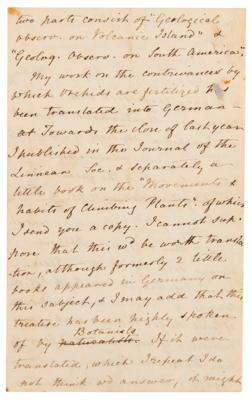 two parts consist of "Geological
observ. on Volcanic Island" &
"Geolog. Observ. on South America".
My work on the contrivances by
which Orchids are fertilized has
been translated into German—
at Towards the close of last year
I published in the Journal of the
Linnean Soc. & separately a
little book on the "Movements &
habits of Climbing Plants". of which
I send you a copy. I cannot sup-
pose that this wd be worth transla-
tion, although formerly 2 little
books appeared in Germany on
this subject, & I may add that this
treatise has been highly spoken
of by naturalists. Botanists If it were
translated, which I repeat I do
not think wd answer, it might